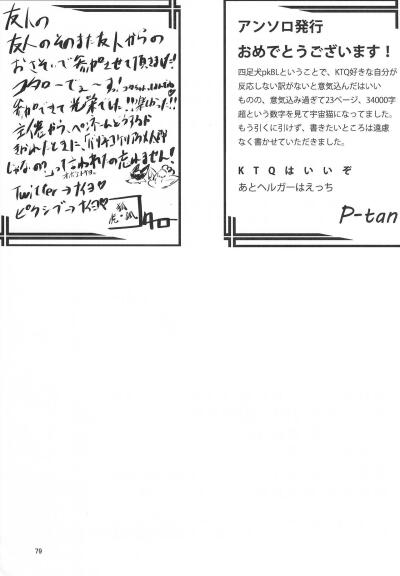 友人の
友人のそのまた友人からの
おさそいで参加させて頂きました!
コタローでぇーす!
参加できて光栄でした!!楽しかった!!
主催から、ペンネームどうするか
きかれたときに、
じゃなの」って言われたの忘れません!
Twitter→
ピクシブ→
狐
虎・
タロー
アンソロ発行
おめでとうございます!
四足犬pkBLということで、KTQ好きな自分が
反応しない訳がないと意気込んだはいい
ものの、意気込み過ぎて23ページ、34000字
超という数字を見て宇宙猫になってました。
もう引くに引けず、書きたいところは遠慮
なく書かせていただきました。
KTQはいいぞ
あとヘルガーはえっち
P-tan
79